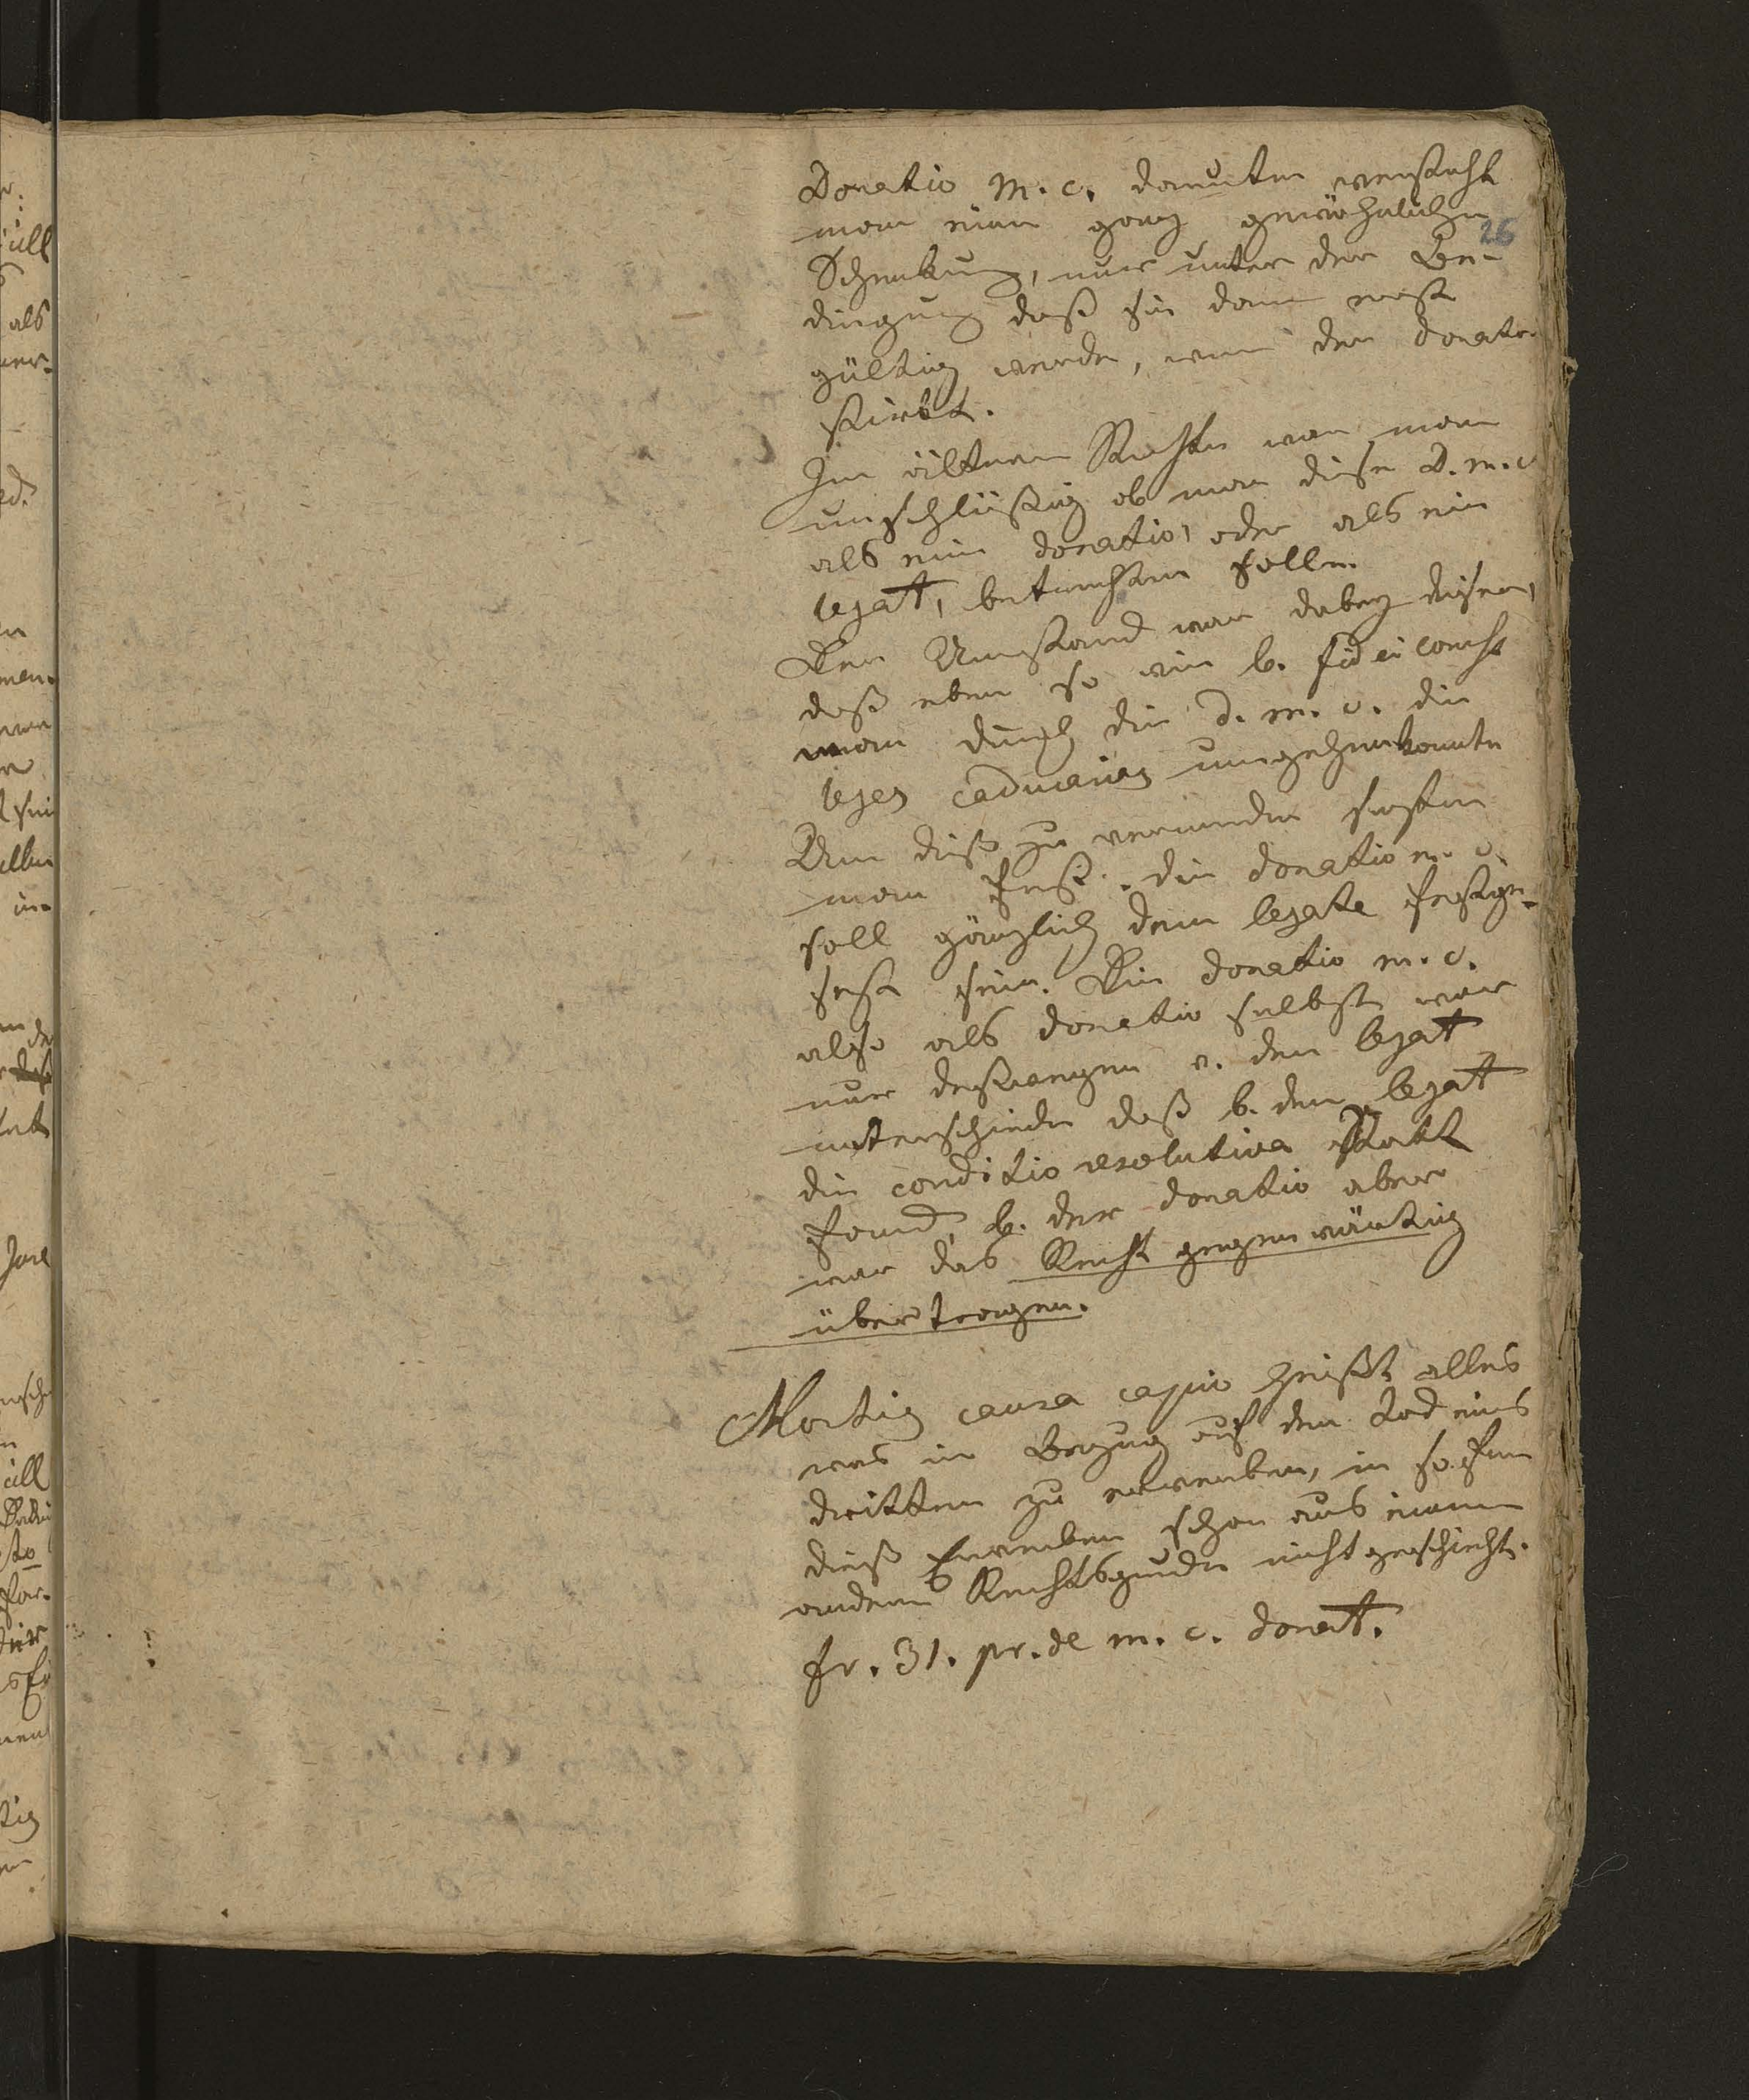 Donatio m. c. darunter versteht
man eine ganz gewöhnliche
26
Schenkung, nur unter der Be-
dingung daß sie dann erst
gültig werde, wenn der donator
stirbt.
Im ältern Rechte war man
unschlüßig ob man diese D. m. c
als eine donatio, oder als ein
legat, betrachten solle.
Der Umstand war dabey dieser,
daß eben so wie b. fideicomiß
man durch die d. m. c. die
leges caducarias umgehen konnte
Um dieß zu vermeiden setzte
man fest. die donatio m. c.
soll gänzlich dem legate
sein. Die donatio m. c.
also als donatio selbst war
nur deßwegen v. dem legat
unterschieden daß b. dem legat
die conditio resolutiva statt
fand, b. der donatio aber
war das Recht gegenwärtig
übertragen.
Mortis causa capio heißt alles
was in Bezug auf den Tod eines
dritten zu erwerben, in so fern
dieß Erwerben schon aus einem
andern Rechtsgrunde nicht geschieht.
fr. 31. pr. de m. c. donat.